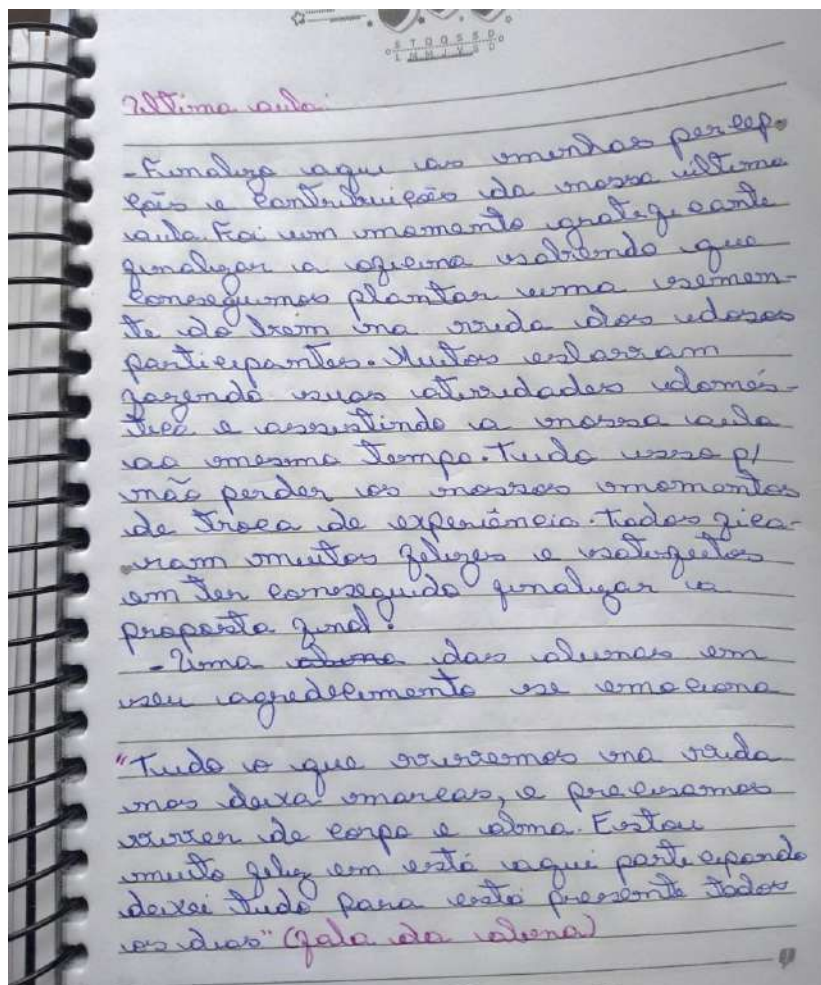 S T Q Q S S D
L M M J V S D
Ultima aula:
-Finalizo aqui as minhas percep-
ções e contribuição da nossa ultima
aula. Foi um momento gratificante
finalizar a oficina sabendo que
conseguimos plantar uma semen-
te do bem na vida dos idosos
participantes. Muitos estavam
fazendo suas atividades domés-
tica e assistindo a nossa aula
ao mesmo tempo. Tudo isso p/
não perder os nossos momentos
de troca de experiência. Todos fica-
ram muitos felizes e satisfeitos
em ter conseguido finalizar a
proposta final!
- Uma aluna das alunas em
seu agradecimento se emociona
"Tudo o que vivemos na vida
nos deixa marcas, e precisamos
viver de corpo e alma. Estou
muito feliz em está aqui participando
deixei tudo para está presente todos
os dias" (fala da aluna)